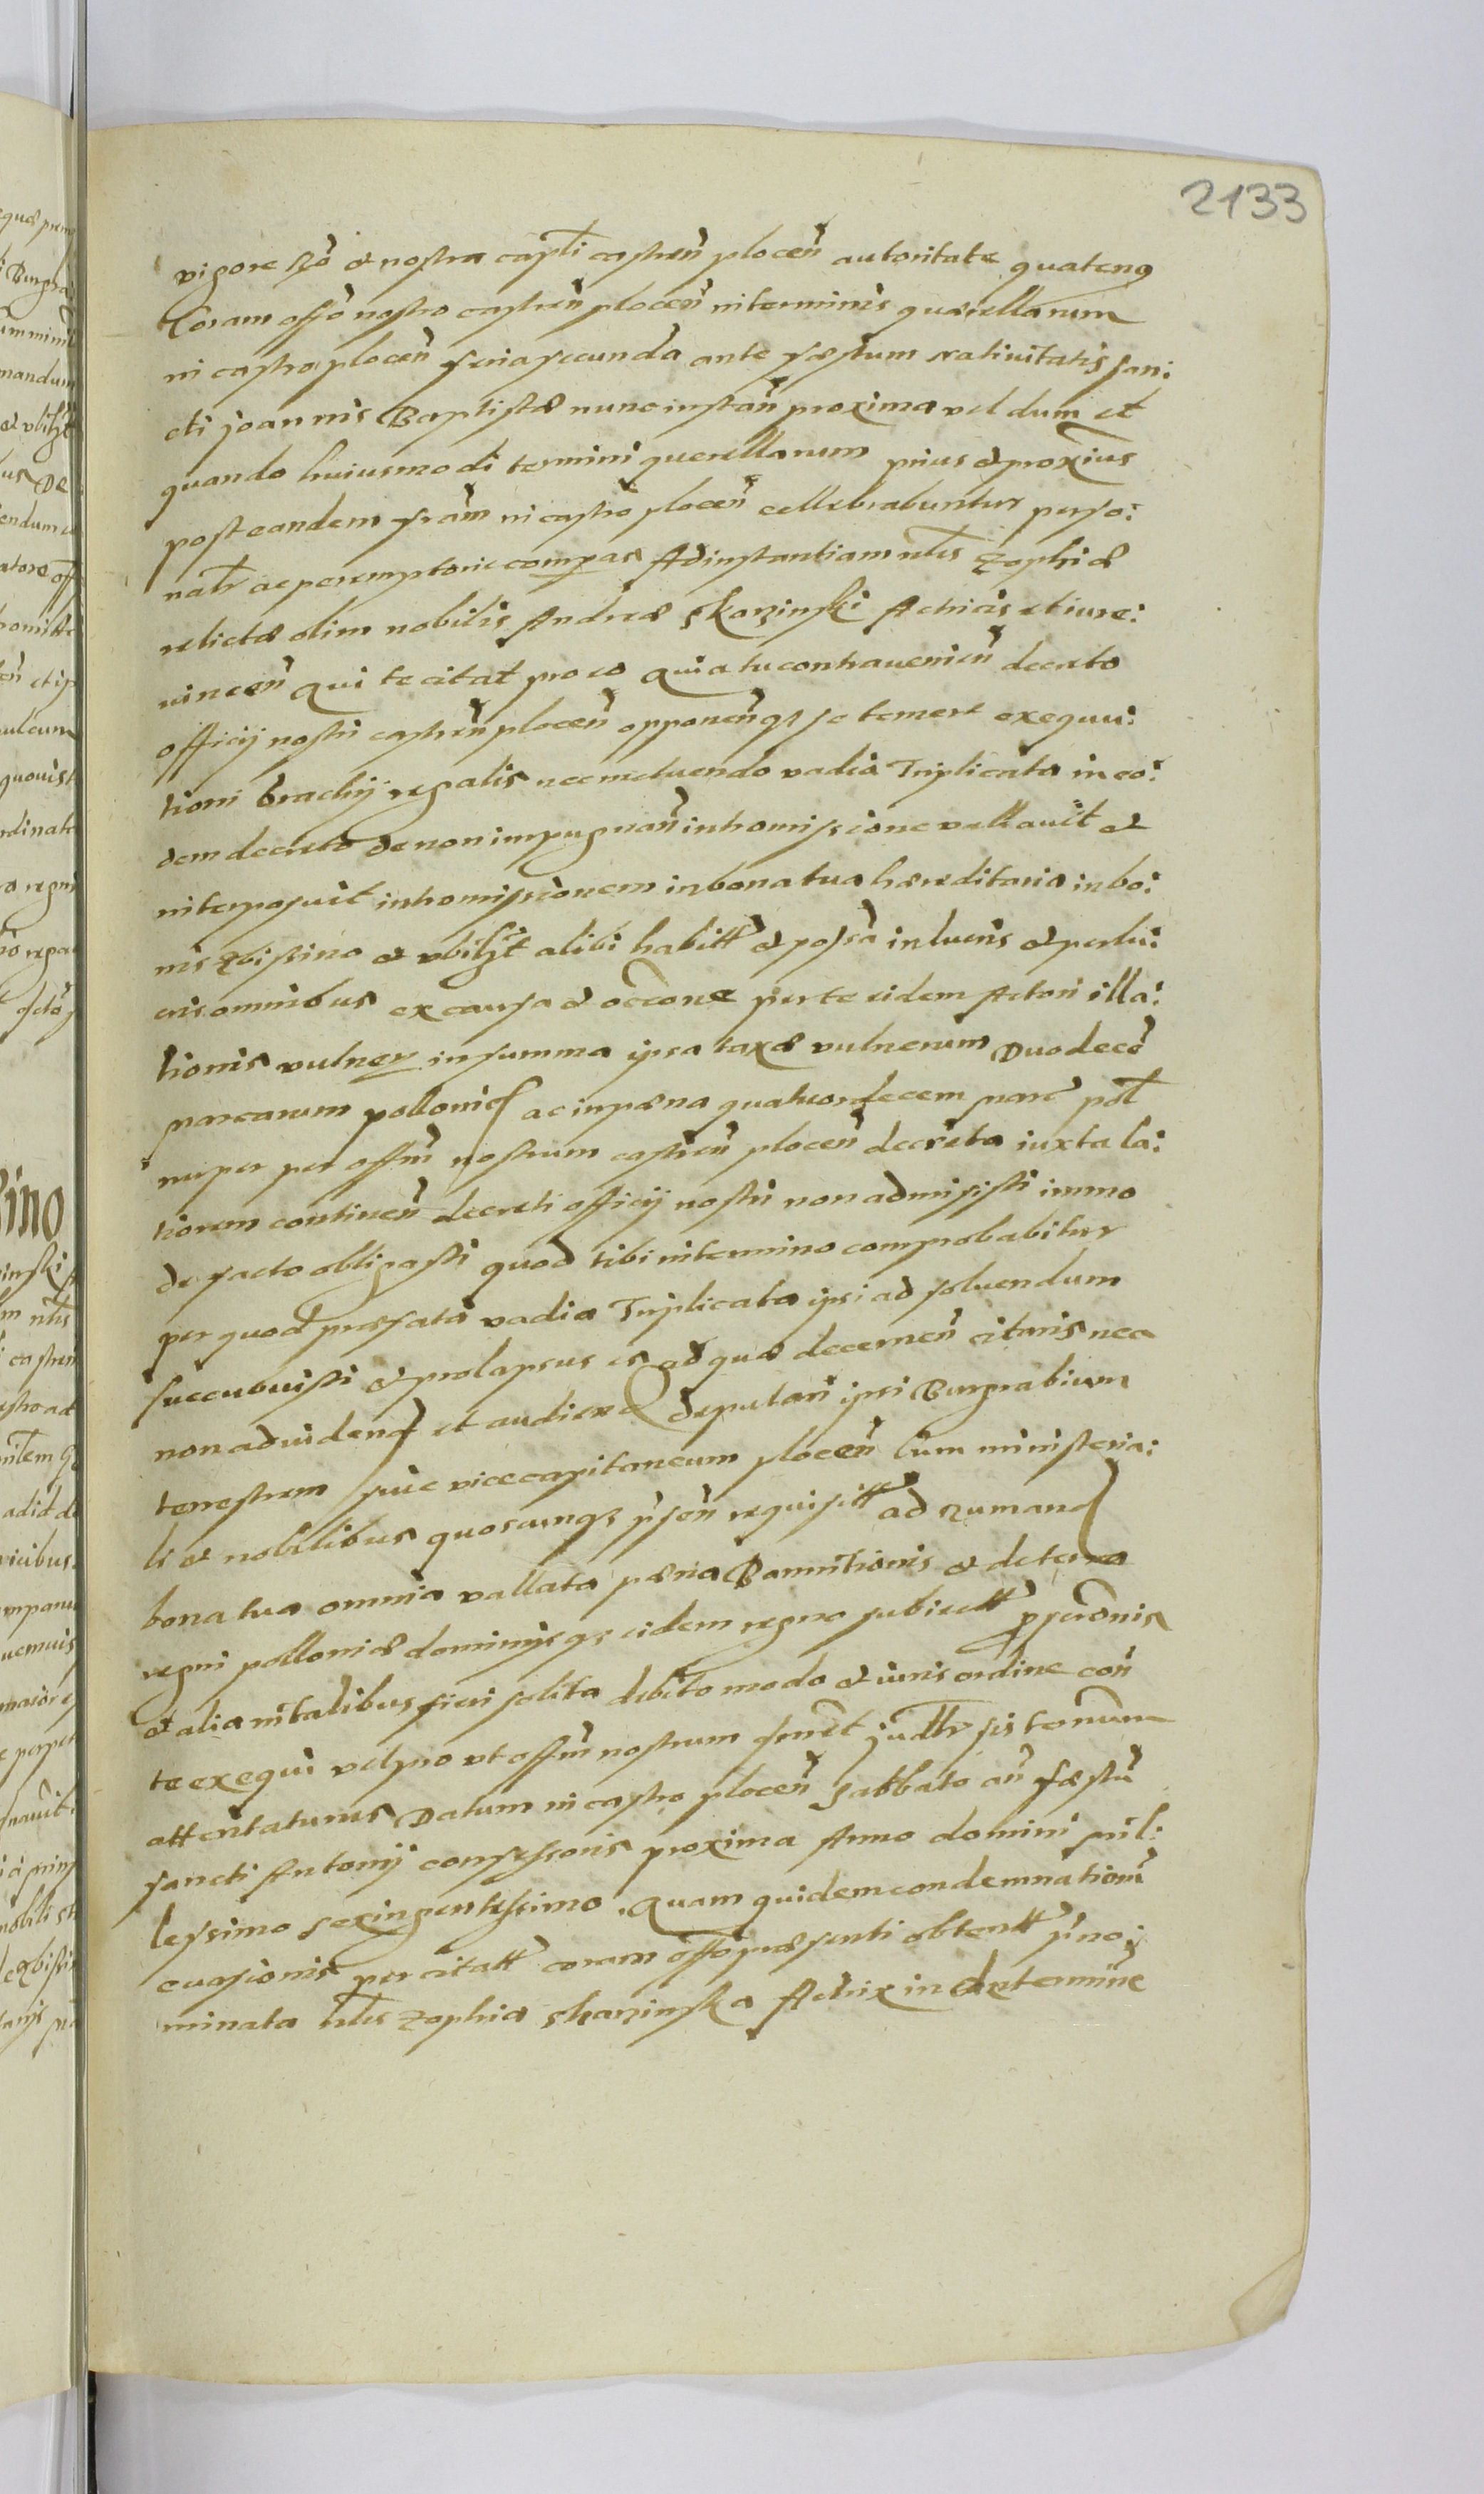 2133
vigore Rō & nostra captl̄i castren̄ plocen̄ autoritate quatenꝰ
Coram offō nostro castren̄ plocen̄ in terminis quærellarum
in castro plocen̄ feria secunda ante fæstum natiuitatis san:
cti joannis Baptistæ nunc instan̄ proxima vel dum et
quando huiusmodi termini querellarum prius & proxius
post eandem fram̄ in castro plocen̄ cellebrabuntur perso:
natr̄ ac peremptorie compas Ad instantiam nlis Zophiæ
relictæ olim nobilis Andreæ Skorzinski Actricis et iure:
uincen̄ Qui te citat pro eo Quia tu contrauenien̄ decreto
officij nostri castren̄ plocen̄ opponen̄qȝ se temere exequu:
tioni brachij regalis nec metuendo vadia Triplicata in eo:
dem decreto de non impugnan̄ intromissione vallauit &
interposuit intromissionem in bona tua hæreditaria in bo:
nis Zbissino & vbilȝt alibi habitt & possa in lucris & perlu:
cris omnibus ex causa & occone per te eidem Actori illa:
tionis vulner in summa ipsa taxæ vulnerum Duodecē
marcarum pollonic ac in pæna quatuordecem marc pol
nuper per offm̄ nostrum castren̄ plocen̄ decreta iuxta la:
tiorem continen̄ decreti officij nostri non admisisti immo
de facto obligasti quod tibi in termino comprobabitur
per quod præfata vadia Triplicata ipsi ad soluendum
succubuisti & prolapsus es ad quæ decernen̄ citaris nec
non ad uidend et audiend deputari ipsi Burgrabium
terrestrem siue vicecapitaneum plocen̄ cum ministeria:
li & nobilibus quoscumqȝ p̄sen̄ requisitt ad Rumand
bona tua omnia vallata pæna Bannitionis & de terra
regni polloniæ dominijsqȝ eidem regno subiectt pscronis
& alia in talibus fieri solita debito modo & iuris ordine con̄
te exequi vel pro vt offm̄ nostrum senrēt judr̄ sis termum
attentaturus Datum in castro plocen̄ Sabbato an̄ fæstū
sancti Antonij confessoris proxima Anno domini mil:
lessimo sexingentessimo. Quam quidem condemnationē
euasionis per citatt coram offo præsenti obtentt p̄no:
minata nlis Zophia skorzinska Actrix in dr termine